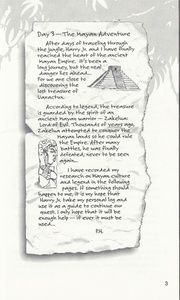 Day 3 – The Mayan Adventure
After days of traveling through
the jungle, Harry Jr. and I have finally
reached the heart of the ancient
Mayan Empire. It's been a
long journey, but the real
danger lies ahead...
For we are close to
discovering the
lost treasure of
According to legend, the treasure
is guarded by the spirit of an
ancient Mayan warrior – Zakelua,
Lord of Evil. Thousands of years ago,
Zakelua attempted to conquer the
Mayan lands so he could rule
the Empire. After many
battles, he was finally
defeated, never to be
seen again...
I have recorded my
research on Mayan culture
and legend in the following
pages. If something should
happen to me, it is my hope that
Harry Jr. take my personal log and
use it as a guide to continue our
quest. I only hope that it will be
enough help – if ever it must be
used...
P.H.
3